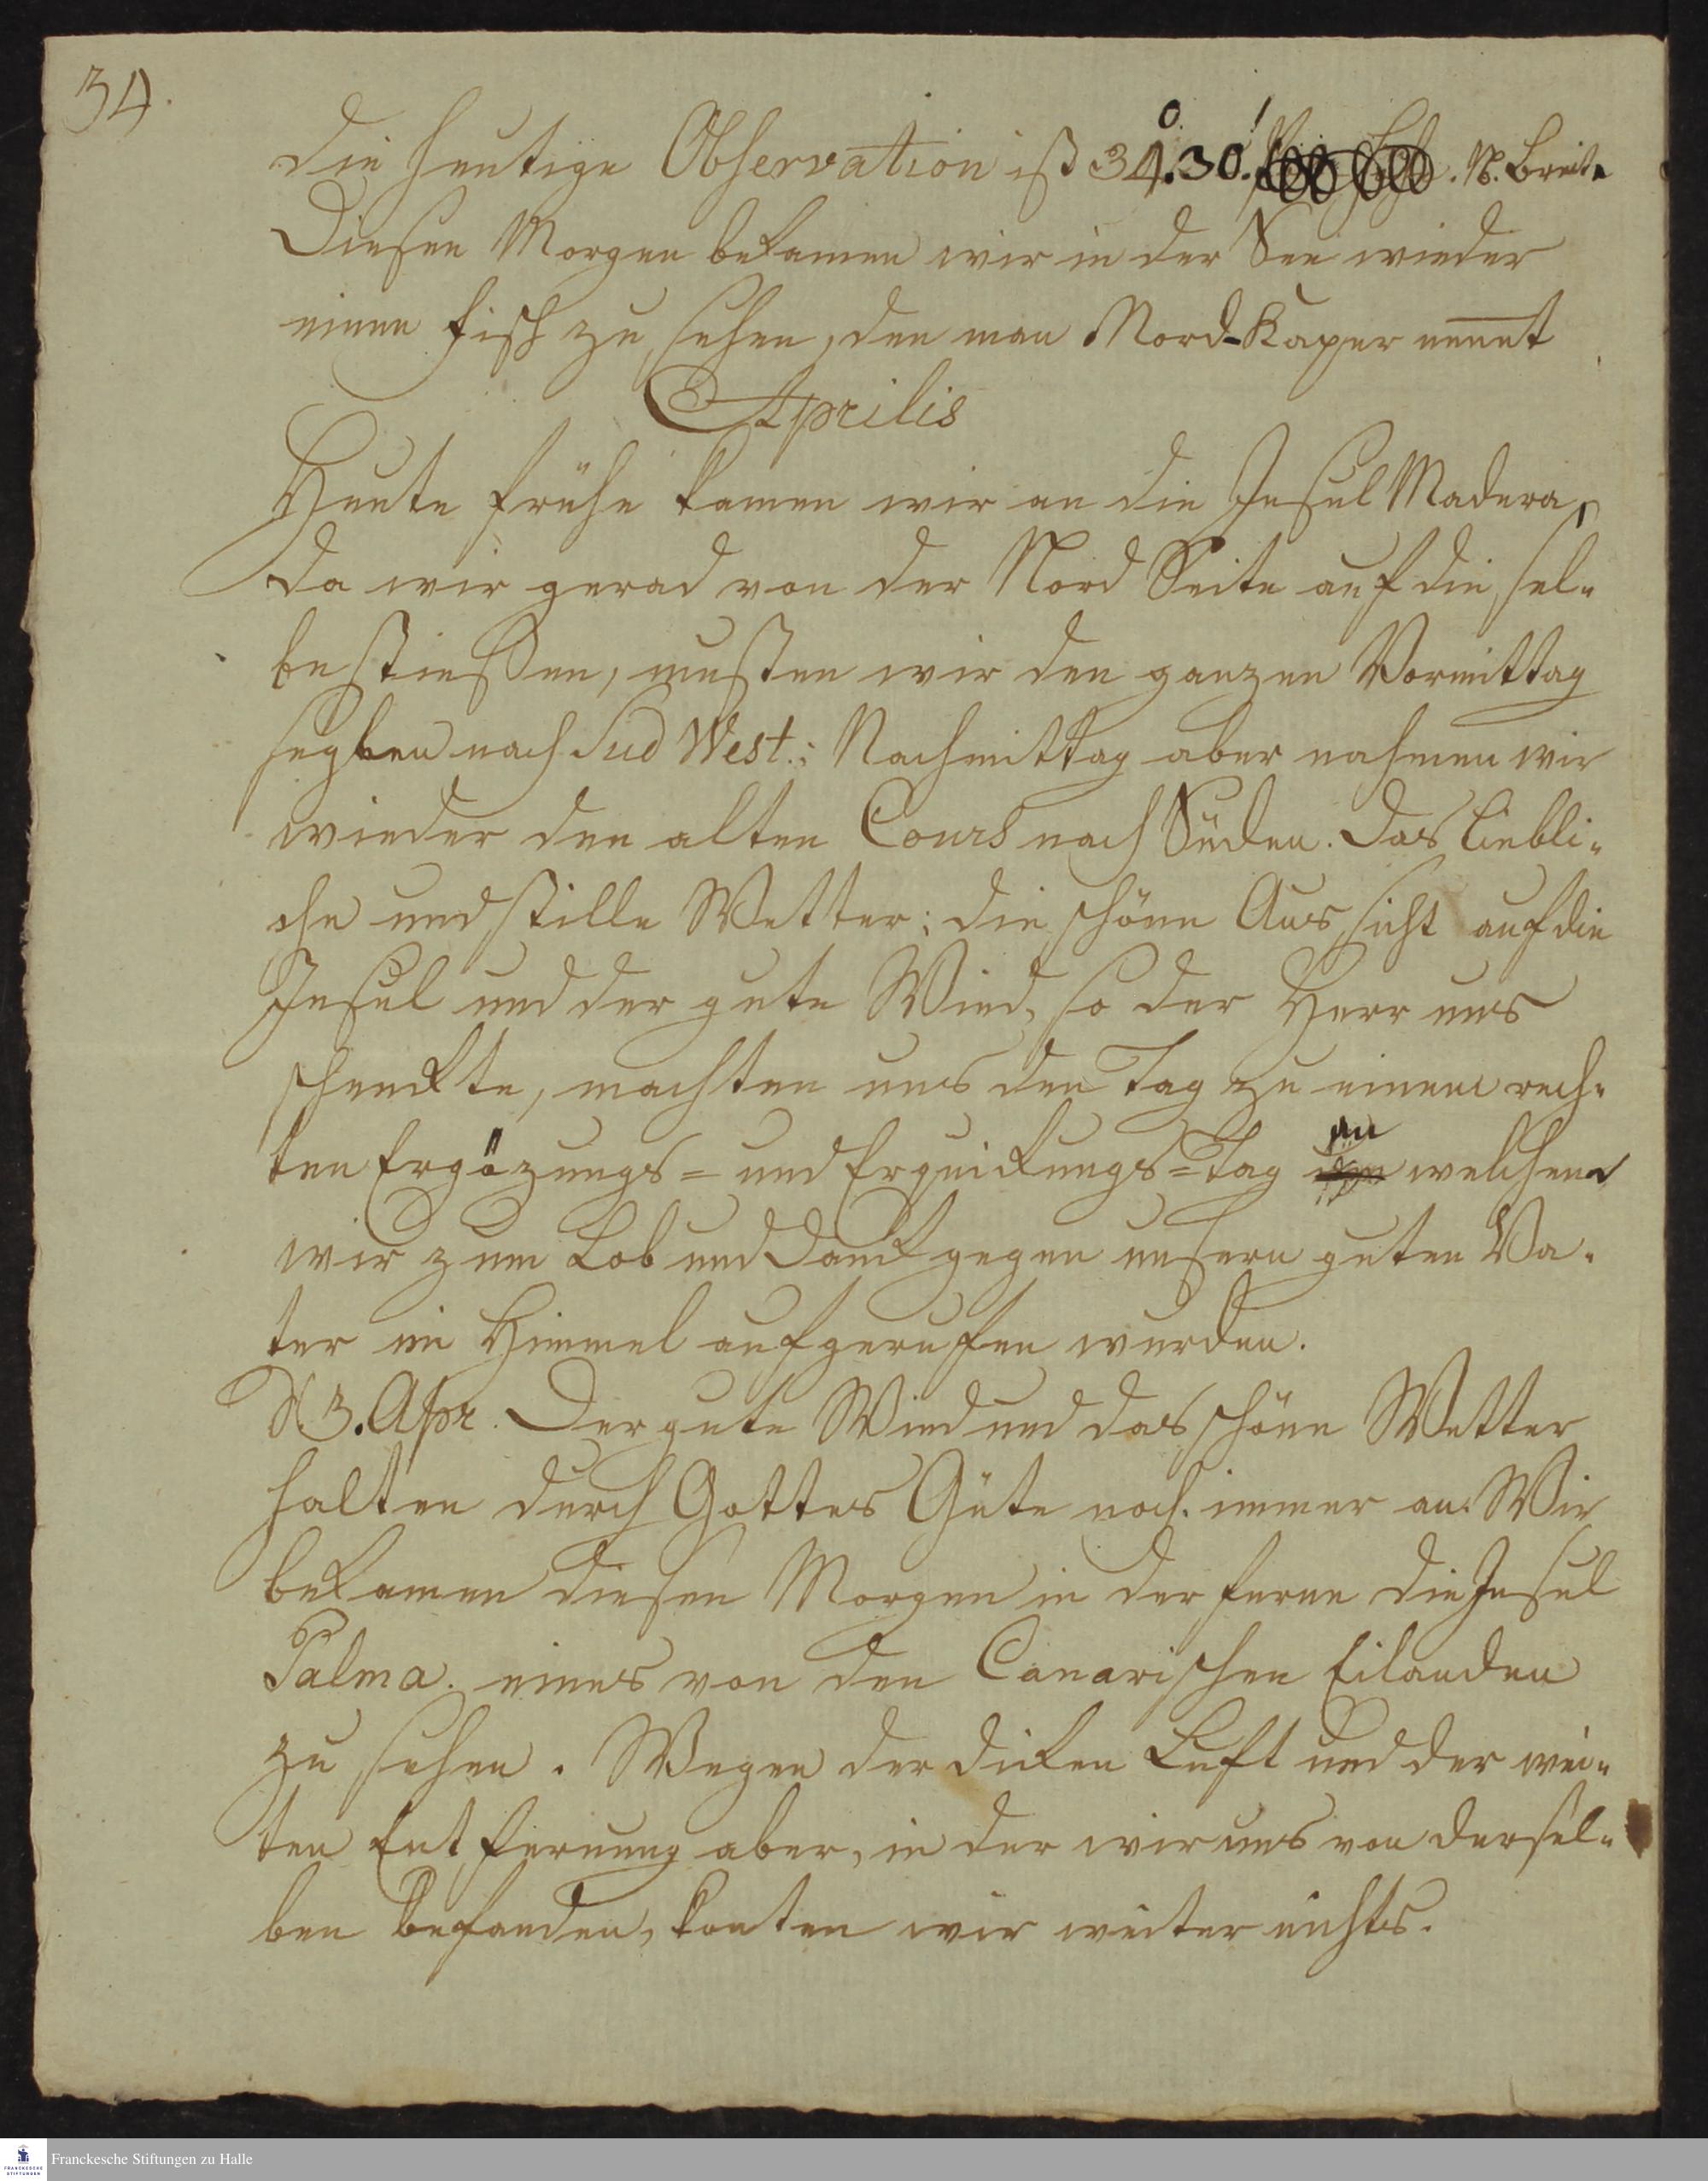 34.
die heutige Observation ist 34°.30.' N. Breit.
Diesen Morgen bekamen wir in der See wieder
einen Fisch zu sehen, den man Nord-Kaper nennt
Aprilis
Heute frühe kamen wir an die Insul Madera,
da wir gerad von der Nord Seite auf die sel-
be stiessen, musten wir den ganzen Vormittag
seglen nach Sud West.: Nachmittag aber nahmen wir
wieder den alten Cours nach Süden. Das liebli-
che und stille Wetter; die schöne Aussicht auf die
Insul und der gute Wind, so der Herr uns
schenkte, machten uns den Tag zu einem rech-
ten Ergözungs- und Erquikungs-Tag an welchem
wir zum Lob und Dank gegen unsern guten Va-
ter im Himmel aufgerufen wurden.
D 3. Apr. Der gute Wind und das schöne Wetter
halten durch Gottes Güte noch immer an. Wir
bekamen diesen Morgen in der ferne die Insul
Palma. eines von den Canarischen Eilanden
zu sehen. Wegen der dicken Luft und der wei-
ten Entfernung aber, in der wir uns von dersel-
ben befanden, konten wir weiter nichts.
Franckesche Stiftungen zu Halle
FRANCKESCHE
STIFTUNGEN